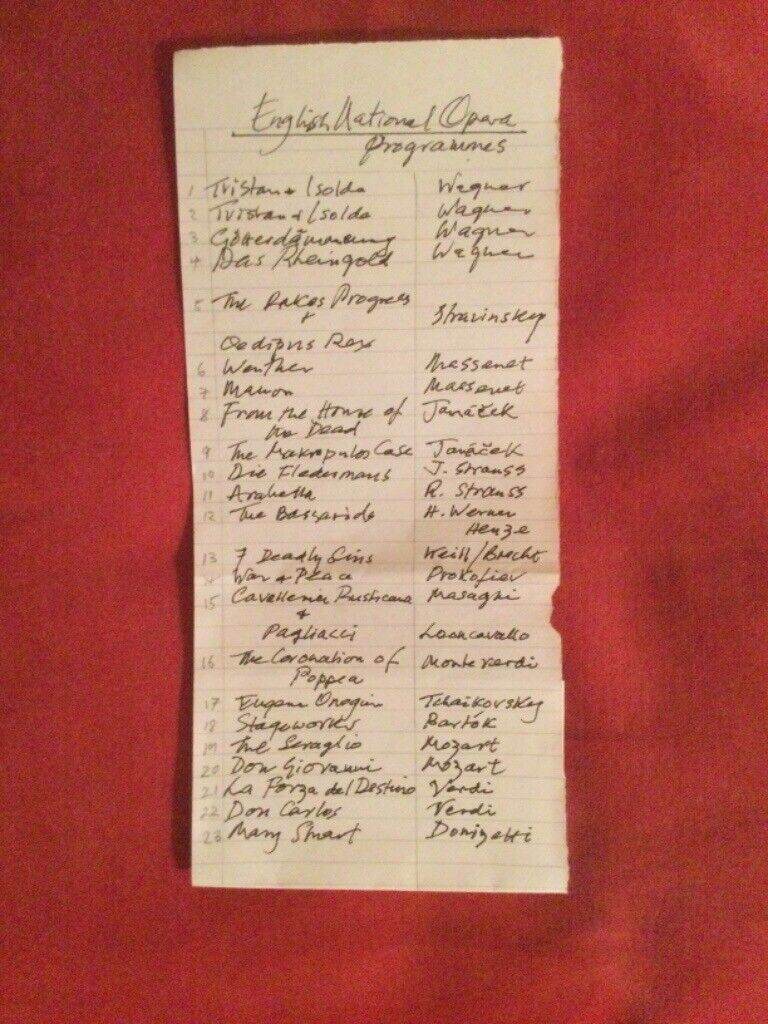 English National Opera
Programmes
1 Tristan + Isolde Wagner
2 Tristan + Isolde Wagner
3 Götterdämmerung Wagner
4 Das Rheingold Wagner
5 The Rakes Progress
+ Stravinskey
Oedipus Rex
6 Werther Massenet
7 Manon Massenet
8 From the House of Janáček
the Dead
9 The Makropulos Case Janáček
10 Die Fledermaus J. Strauss
11 Arabella R. Strauss
12 The Bassarids H. Werner
Henze
13 7 Deadly Sins Weill/Brecht
14 War + Peace Prokofiev
15 Cavelleria Rusticana Masagni
+
Pagliacci Leoncavallo
16 The Coronation of Monteverdi
Poppea
17 Eugene Onegin Tchaikovskey
18 Stageworks Bartók
19 The Seraglio Mozart
20 Don Giovanni Mozart
21 La Forza del Destino Verdi
22 Don Carlos Verdi
23 Mary Stuart Donizetti